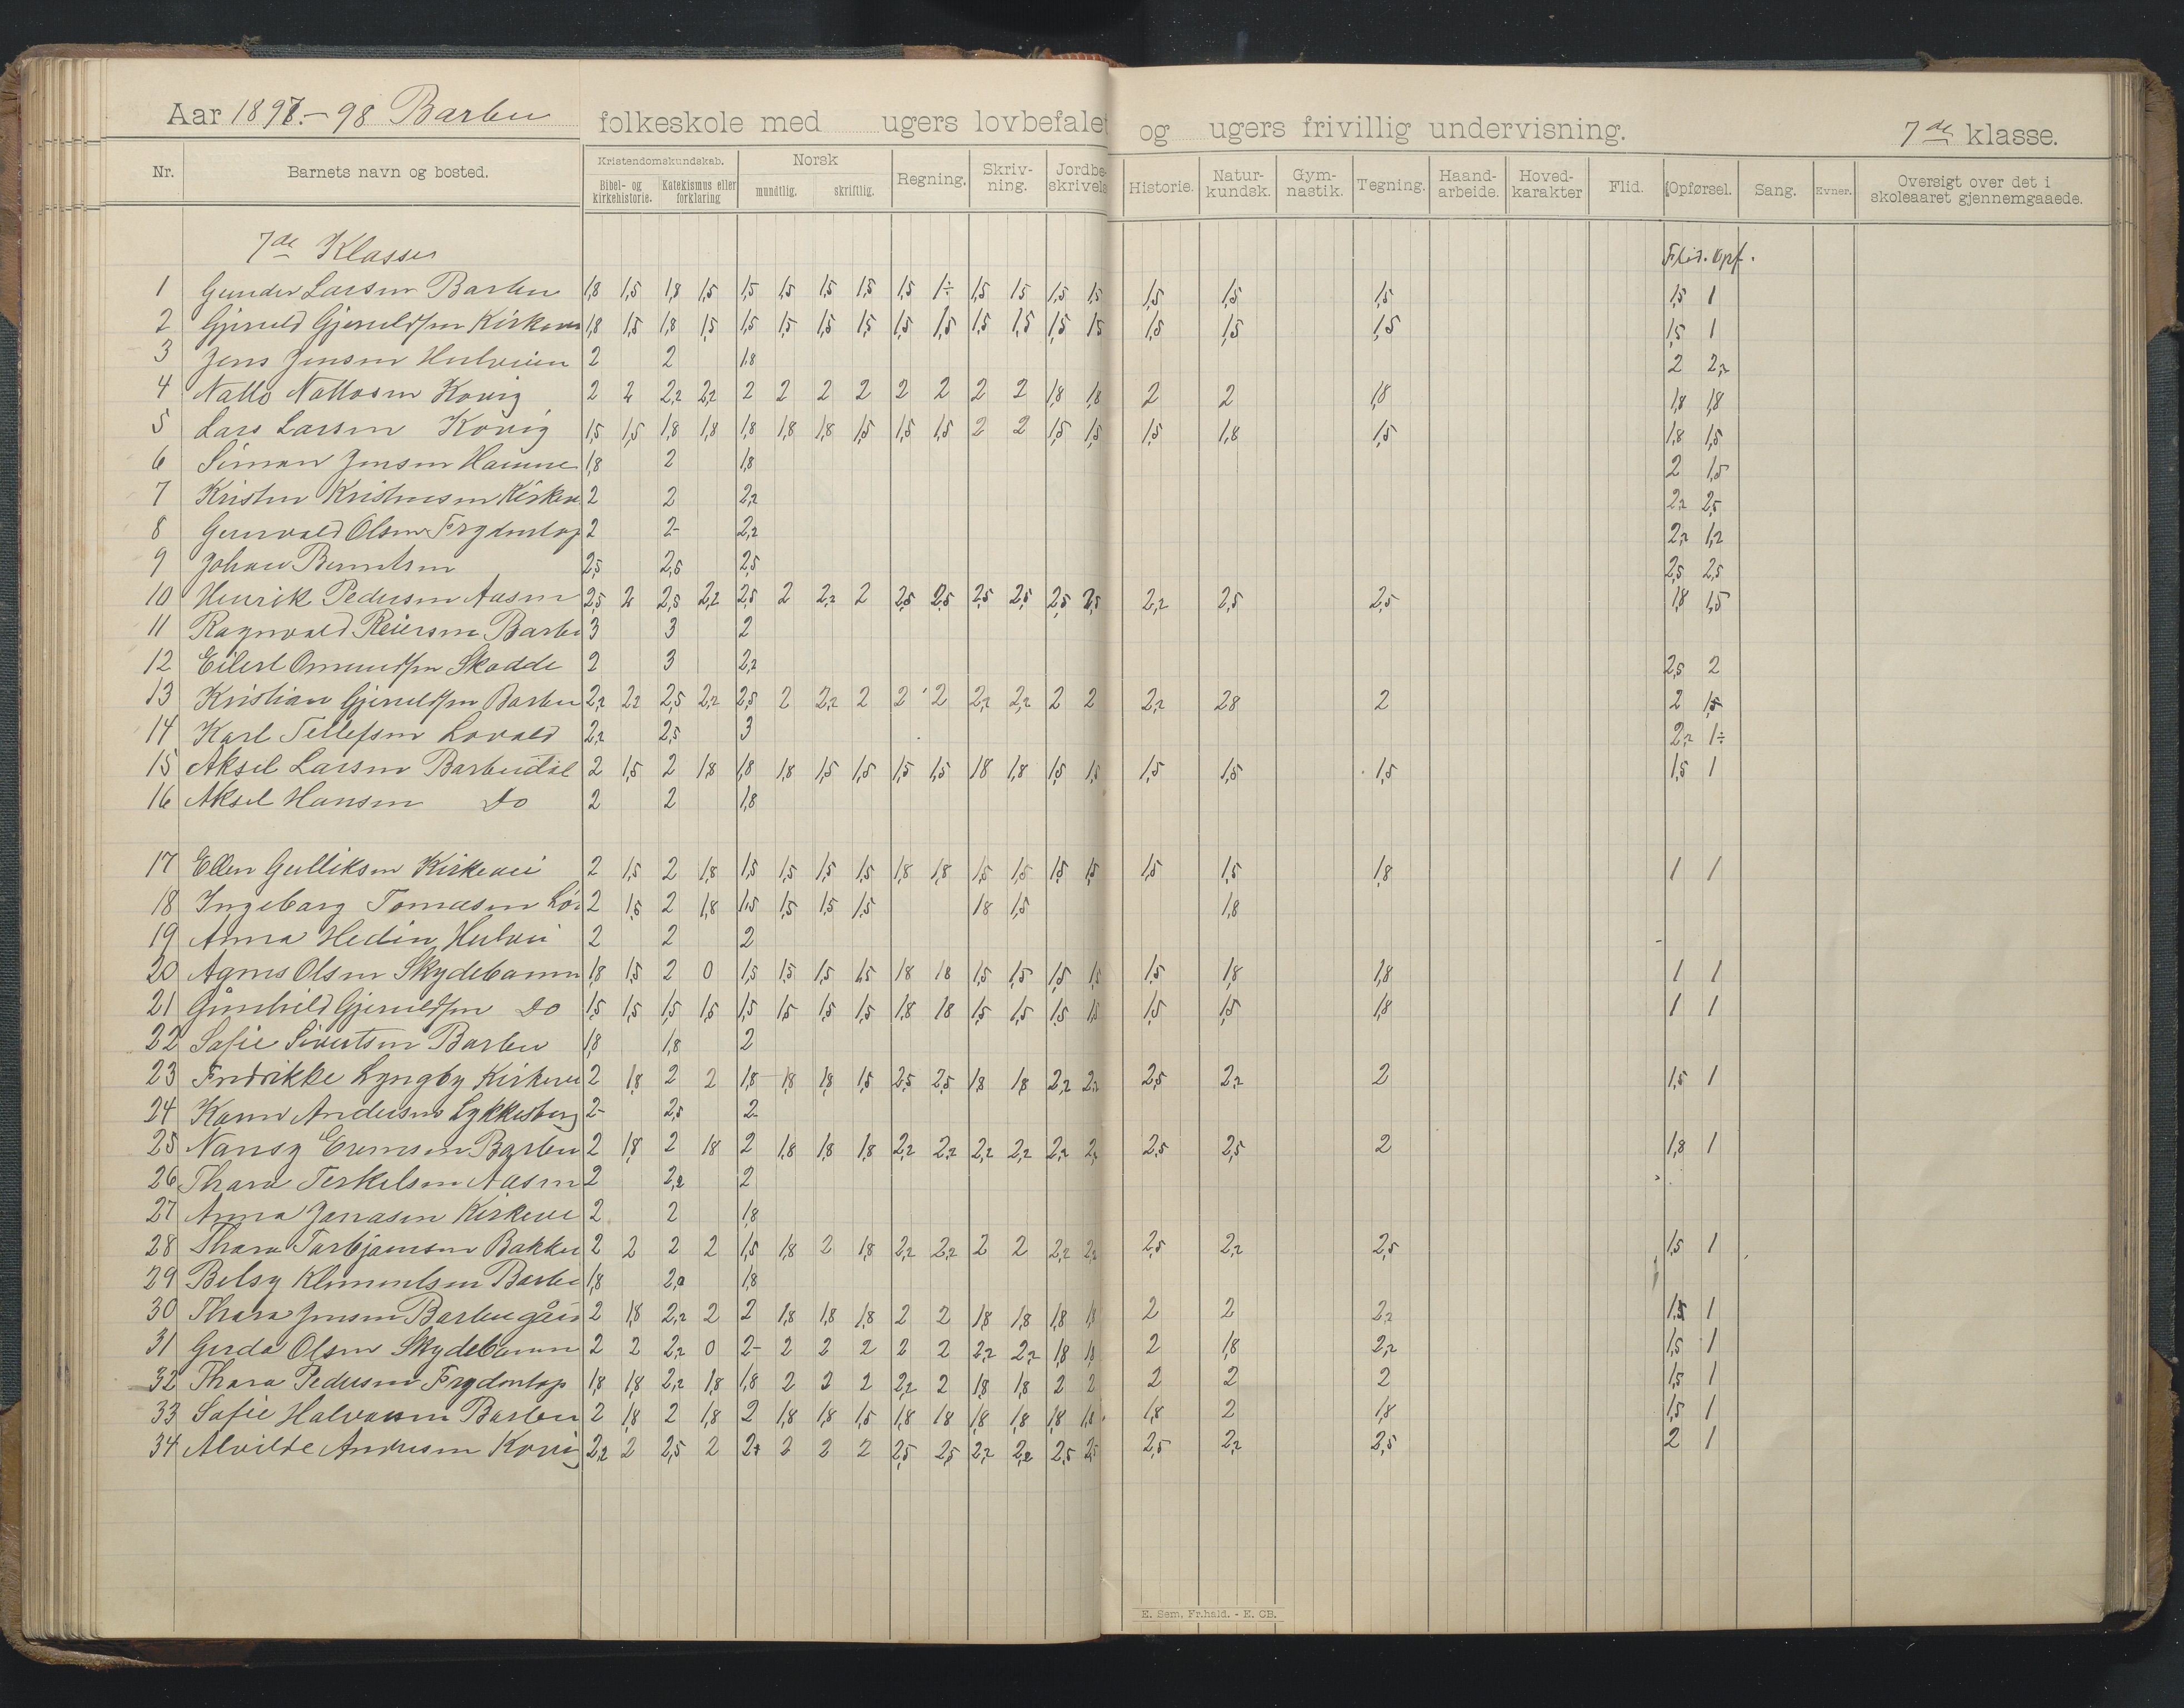 Aar 1897.-98 Barbu folkeskole med ugers lovbefalet og ugers frivillig undervisning. 7de klasse.
Nr. Barnets navn og bosted. Kristendomskundskab. Norsk Regning. Skriv-ning. Jordbe-skrivels Historie. Natur-kundsk. Gym-nastik. Tegning. Haand-arbeide. Hoved-karakter Flid. Opførsel. Sang. Evner. Oversigt over det i skoleaaret gjennemgaaede.
Bibel- og kirkehistorie. Katekismus eller forklaring mundtlig. skriftlig.
7de Klasse Flid. Opf.
1 Gunder Larsen Barbu 1,8 1,5 1,8 1,5 1,5 1,5 1,5 1,5 1,5 1÷ 1,5 1,5 1,5 1,5 1,5 1,5 1,5 1,5 1
2 Gjeruld Gjeruldsen Kirkevei 1,8 1,5 1,8 1,5 1,5 1,5 1,5 1,5 1,5 1,5 1,5 1,5 1,5 1,5 1,5 1,5 1,5 1,5 1
3 Jens Jensen Hulveien 2 2 1,8 2 2,2
4 Natto Nattosen Kovig 2 2 2,2 2,2 2 2 2 2 2 2 2 2 1,8 1,8 2 2 1,8 1,8 1,8
5 Lars Larsen Kovig 1,5 1,5 1,8 1,8 1,8 1,8 1,8 1,5 1,5 1,5 2 2 1,5 1,5 1,5 1,8 1,5 1,8 1,5
6 Simon Jensen 1,8 2 1,8 2 1,5
7 Kristen Kristensen Kirkev 2 2 2,2 2,2 2,5
8 Gunvald Olsen Frydenlop 2 2- 2,2 2,2 1,2
9 Johan Berntsen 2,5 2,5 2,5 2,5 2,5
10 Henrik Pedersen Aasen 2,5 2 2,5 2,2 2,5 2 2,2 2 2,5 2,5 2,5 2,5 2,5 2,5 2,2 2,5 2,5 1,8 1,5
11 Ragnvald Reiersen Barbu 3 3 2
12 Eilert Omundsen Skodde 2 3 2,2 2,5 2
13 Kristian Gjeruldsen Barbu 2,2 2,2 2,5 2,2 2,5 2 2,2 2 2 2 2,2 2,2 2 2 2,2 28 2 2 1,5
14 Karl Tellefsen Lovold 2,2 2,5 3 2,2 1÷
15 Aksel Larsen Barbudal 2 1,5 2 1,8 1,8 1,8 1,5 1,5 1,5 1,5 18 1,8 1,5 1,5 1,5 1,5 1,5 1,5 1
16 Aksel Hansen Do 2 2 1,8
17 Ellen Gulliksen Kirkevei 2 1,5 2 1,8 1,5 1,5 1,5 1,5 1,8 1,8 1,5 1,5 1,5 1,5 1,5 1,5 1,8 1 1
18 Ingeborg Tomasen 2 1,5 2 1,8 1,5 1,5 1,5 1,5 18 1,5 1,8
19 Anna Hedin Hulvei 2 2 2
20 Agnes Olsen Skydebanen 1,8 1,5 2 0 1,5 1,5 1,5 1,5 18 18 1,5 1,5 1,5 1,5 1,5 1,8 1,8 1 1
21 Gunhild Gjeruldsen Do 1,5 1,5 1,5 1,5 1,5 1,5 1,5 1,5 1,8 18 1,5 1,5 1,5 1,5 1,5 1,5 1,8 1 1
22 Sofie Sivertsen Barbu 1,8 1,8 2
23 Fredrikke Lyngby Kirkevei 2 1,8 2 2 1,8 1,8 1,8 1,5 2,5 2,5 1,8 1,8 2,2 2,2 2,5 2,2 2 1,5 1
24 Karen Andersen Lykkesberg 2- 2,5 2
25 Nansy Evensen Barbu 2 1,8 2 18 2 1,8 1,8 1,8 2,2 2,2 2,2 2,2 2,2 2,2 2,5 2,5 2 1,8 1
26 Thara Terkelsen Aasen 2 2,2 2
27 Anna Jonasen Kirkevei 2 2 1,8
28 Thara Torbjørnsen Bakken 2 2 2 2 1,5 1,8 2 1,8 2,2 2,2 2 2 2,2 2,2 2,5 2,2 2,5 1,5 1
29 Betsy Klementsen Barbu 1,8 2,2 1,8
30 Thara Jensen Barbugård 2 1,8 2,2 2 2 1,8 1,8 1,8 2 2 1,8 1,8 1,8 1,8 2 2 2,2 1,5 1
31 Gerda Olsen Skydebanen 2 2 2,2 0 2- 2 2 2 2 2 2,2 2,2 1,8 1,8 2 1,8 2,2 1,5 1
32 Thara Pedersen Frydenlop 1,8 1,8 2,2 1,8 1,8 2 2 2 2,2 2 1,8 1,8 2 2 2 2 2 1,5 1
33 Sofie Halvorsen Barbu 2 1,8 2 1,8 2 1,8 1,8 1,5 1,8 1,8 1,8 1,8 1,8 1,8 1,8 2 1,8 1,5 1
34 Alvilde Andresen Kovig 2,2 2 2,5 2 2+ 2 2 2 2,5 2,5 2,2 2,2 2,5 2,5 2,5 2,2 2,5 2 1
E. Sem, Fr.hald. - E. CB.